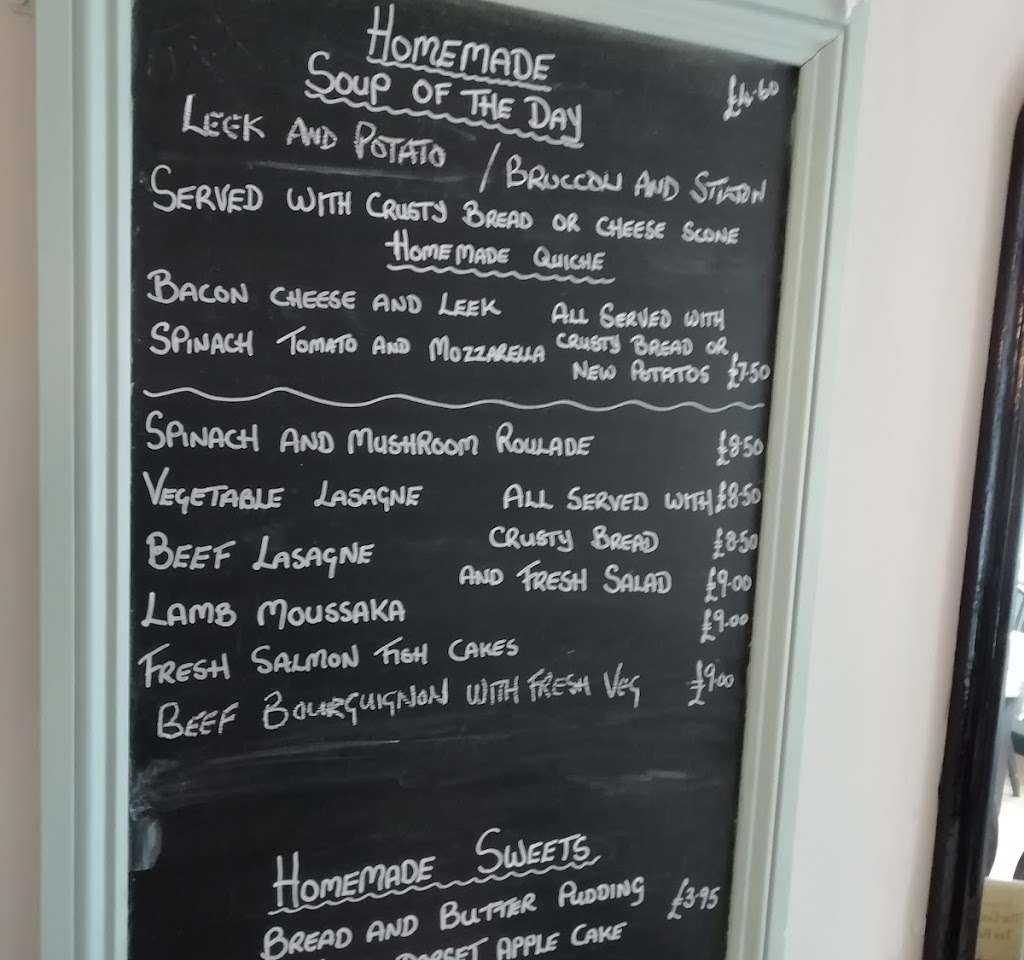 HOMEMADE
SOUP OF THE DAY £4.60
LEEK AND POTATO / BRUCCOLI AND STILTON
SERVED WITH CRUSTY BREAD OR CHEESE SCONE
HOMEMADE QUICHE
BACON CHEESE AND LEEK ALL SERVED WITH
SPINACH TOMATO AND MOZZARELLA CRUSTY BREAD OR
NEW POTATOS £7.50
SPINACH AND MUSHROOM ROULADE £8.50
VEGETABLE LASAGNE ALL SERVED WITH £8.50
BEEF LASAGNE CRUSTY BREAD £8.50
AND FRESH SALAD £9.00
LAMB MOUSSAKA £9.00
FRESH SALMON FISH CAKES
BEEF BOURGUIGNON WITH FRESH VEG £9.00
HOMEMADE SWEETS
BREAD AND BUTTER PUDDING £3.95
DORSET APPLE CAKE